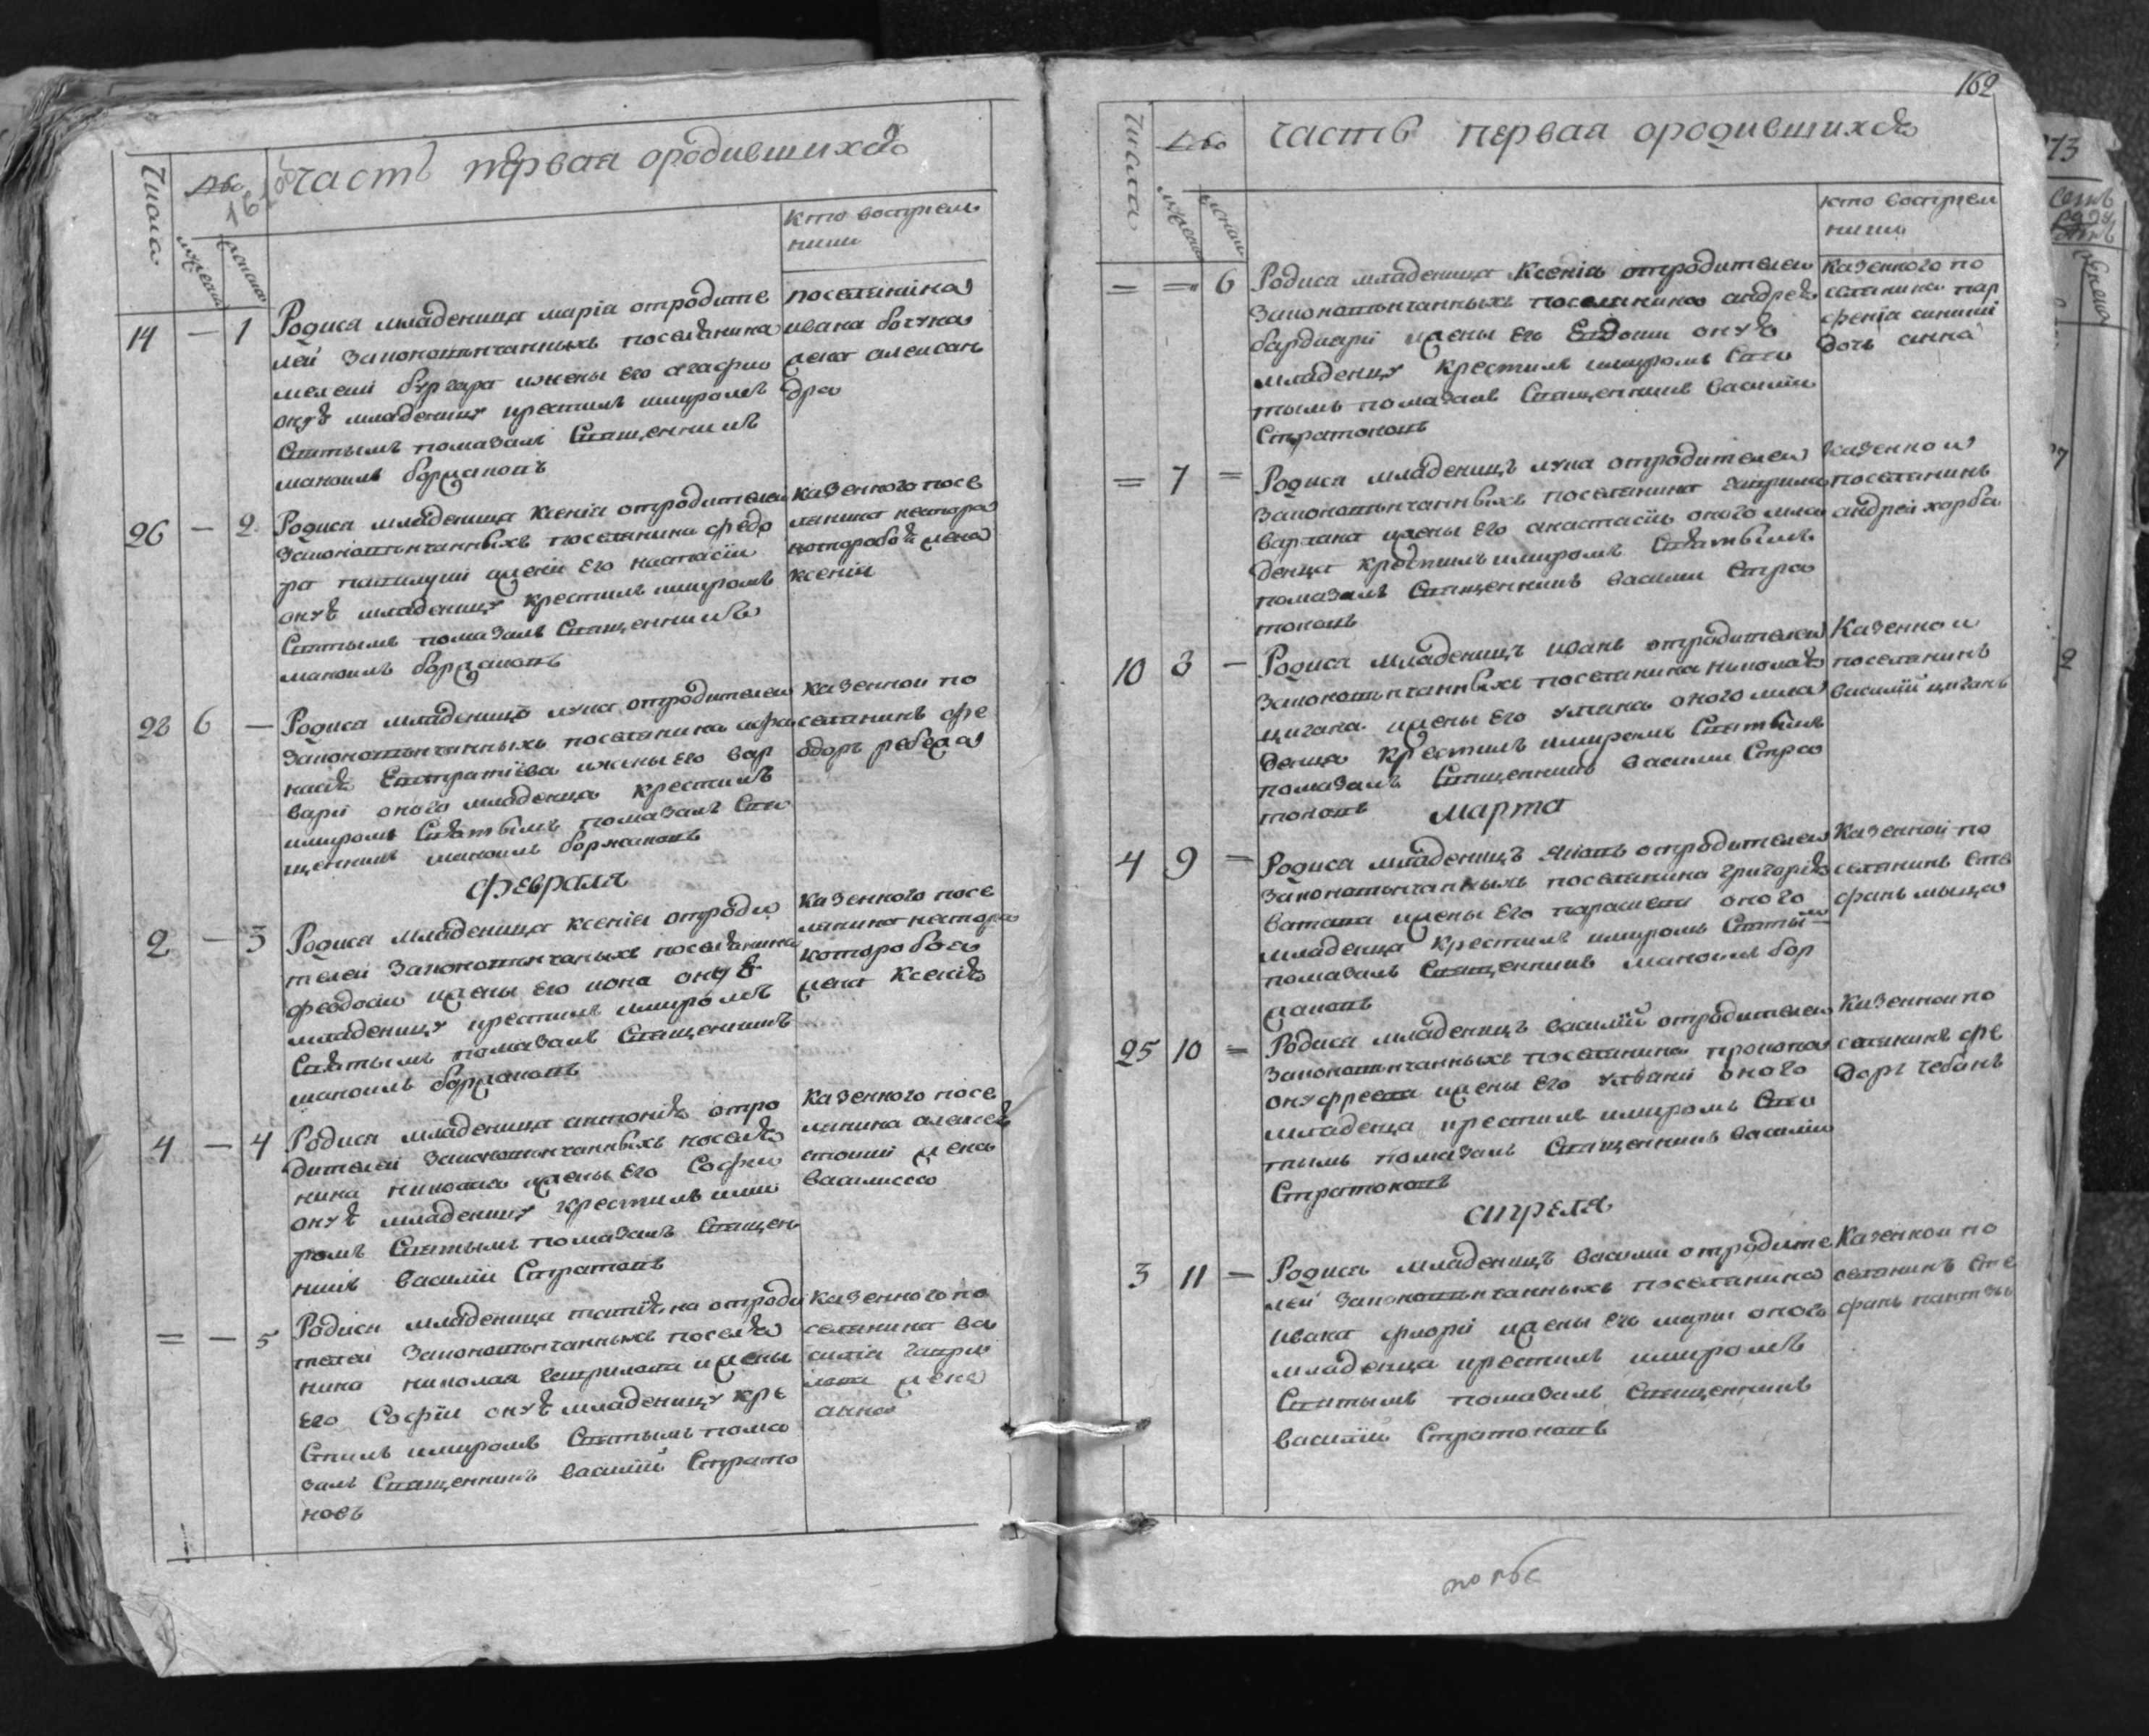 Числа
часть первая ородившихся
кто восприем
ники
14 — 1 Родися младеница мариа отродите
лей Законовѣнчанныхъ поселянина
мелети бургара ижены его агафии
онуѣ младеницу крестилъ имиромъ
Святымъ помазалъ Священникъ
маноилъ боржановъ
поселянина
ивана
жена алексан
дра
26 — 2 Родися младеница ксениа отродителей
Законовѣнчанныхъ поселянина федо
ра жени его настасіи
онуѣ младеницу крестилъ имиромъ
Святымъ помазалъ Священникъ
маноилъ боржановъ
казенного посе
лянина нестора
которобоѣ жена
ксениа
28 6 — Родися младеницъ лука отродителей
Законовѣнчанныхъ поселянина афа
насѣ Евстратіева ижены его вар
вари оного младенца крестилъ
имиромъ Святымъ помазалъ Свя
щенникъ маноилъ боржановъ
казенной по
селянинъ фе
одоръ
февраля
2 — 3 Родися младеница ксениа отроди
телей Законовѣнчаныхъ поселянина
феодоси жены его иона онуѣ
младеницу крестилъ имиромъ
Святымъ помазалъ Священникъ
маноилъ боржановъ
казенного посе
лянина нестора
которобоа
жена ксениѣ
4 — 4 Родися младеница антониѣ отро
дителей Законовѣнчанныхъ поселя
нина николая жены его Софии
онуѣ младеницу крестилъ ими
ромъ Святымъ помазалъ Священ
никъ Василии Стратовъ
казенного посе
лянина алексеѣ
стоиии жена
василисса
= — 5 Родися младеница татіѣна отроди
телей Законовѣнчанныхъ поселя
нина николая гаврилова ижены
его Софіи онуѣ младеницу кре
стилъ имиромъ Святымъ пома
залъ Священникъ василий Страто
новъ
казенного по
селянина ва
силіа гаври
лова жена
анна
162
Числа
часть первая ородившихся
кто восприем
ники
= — 6 Родися младеница Ксениа отродителей
Законовѣнчанныхъ поселянина андреѣ
жены его Евдокии онуѣ
младеницу крестилъ имиромъ Свя
тымъ помазалъ Священникъ василии
Стратоновъ
казенного по
селянина пар
фениа
дочь анна
= 7 = Родися младеницъ лука отродителей
Законовѣнчанныхъ поселянина гаврила
варлана жены его анастасіи оного мла
денца крестилъ имиромъ Святымъ
помазалъ Священникъ василии Стра
тоновъ
казенной
поселянинъ
андрей харба
10 8 — Родися младеницъ иванъ отродителей
Законовѣнчанныхъ поселянина николаѣ
цигана жены его оного мла
денца крестилъ имиромъ Святымъ
помазалъ Священникъ василии Стра
тоновъ
Казенной
поселянинъ
василий циганъ
марта
4 9 = Родися младеницъ Яковъ отродителей
Законовѣнчанныхъ поселянина григориѣ
ватава жены его параскеви оного
младенца крестилъ имиромъ Святым
помазалъ Священникъ маноилъ бор
жановъ
казенной по
селянинъ сте
фанъ мыца
25 10 = Родися младеницъ василий отродителей
Законовѣнчанныхъ поселянина прокопа
онуфреева жены его оного
младенца крестилъ имиромъ Свя
тымъ помазалъ Священникъ василии
Стратоновъ
казенной по
селянинъ фе
доръ чебанъ
апреля
3 11 — Родися младеницъ василии отродите
лей Законовѣнчанныхъ поселянина
ивана флори жены его марии оного
младенца крестилъ имиромъ
Святымъ помазалъ Священникъ
василий Стратоновъ
казенной по
селянинъ сте
фанъ